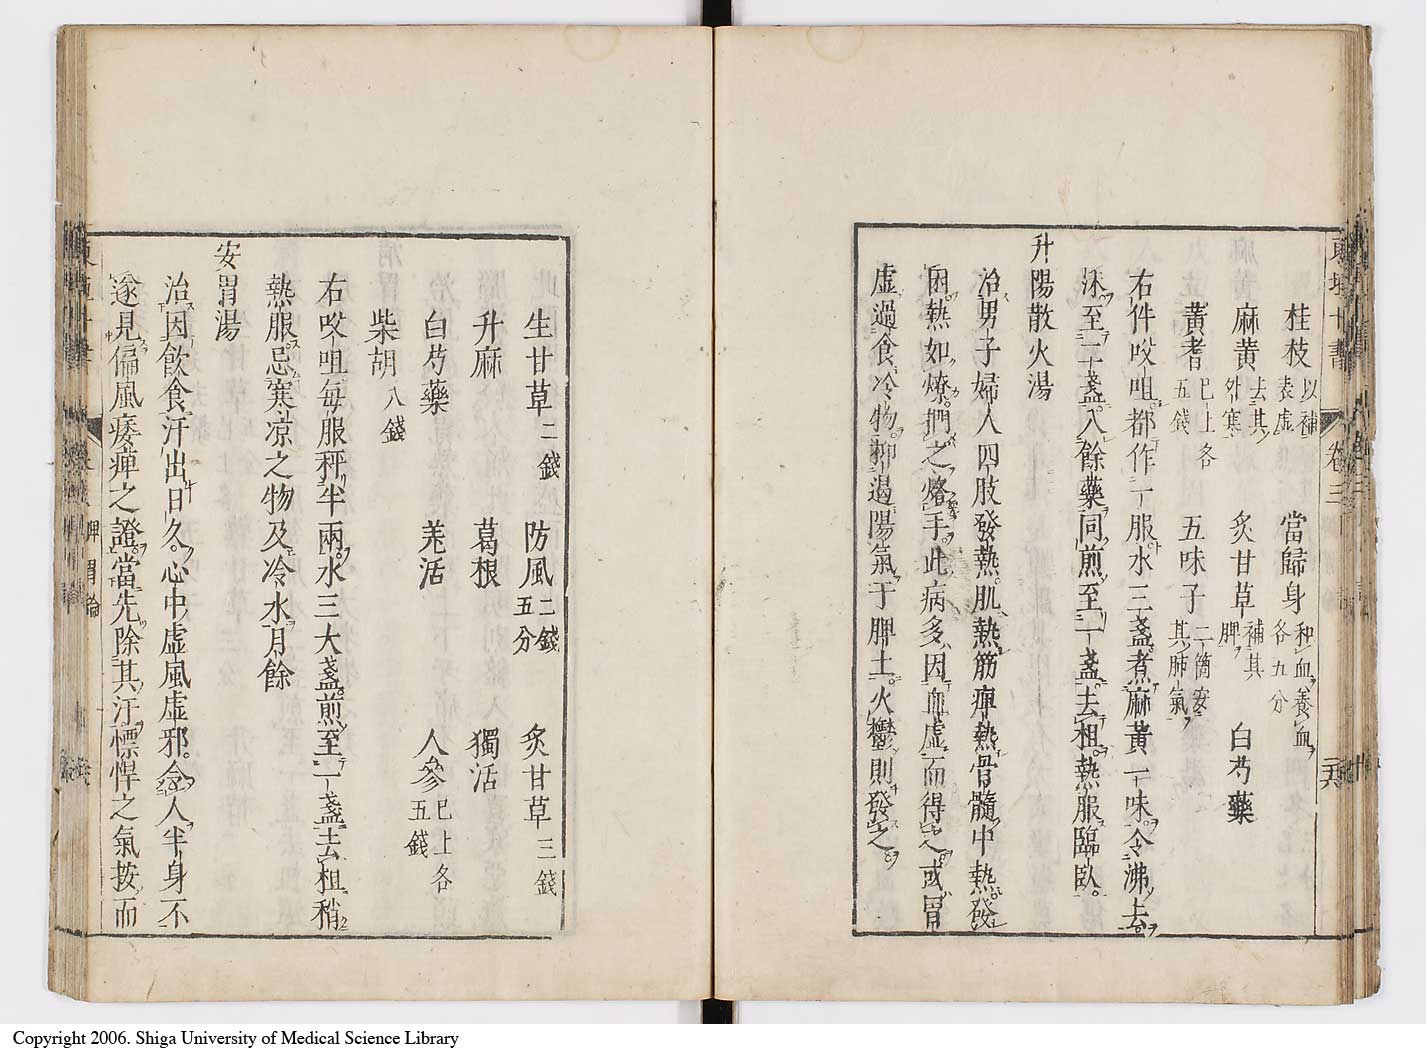 桂枝以補表虛 當歸身和血養血各五分
麻黃去其外寒 炙甘草補其脾 白芍藥
黃耆已上各五錢 五味子二箇安其肺氣
右件㕮咀都作一服水三盞煮麻黃一味令沸去
沫至二盞入餘藥同煎至一盞去柤熱服臨臥
升陽散火湯
治男子婦人四肢發熱肌熱筋痺熱骨髓中熱發
困熱如燎捫之烙手此病多因血虛而得之或胃
虛過食冷物抑遏陽氣于脾土火鬱則發之
生甘草二錢 防風二錢五分 炙甘草三錢
升麻 葛根 獨活
白芍藥 羌活 人參已上各五錢
柴胡八錢
右㕮咀每服秤半兩水三大盞煎至一盞去柤稍
熱服忌寒凉之物及冷水月餘
安胃湯
治因飲食汗出日久心中虛風虛邪令人半身不
遂見偏風痿痺之證當先除其汗慓悍之氣按而
東垣十書 卷三
Copyright 2006. Shiga University of Medical Science Library